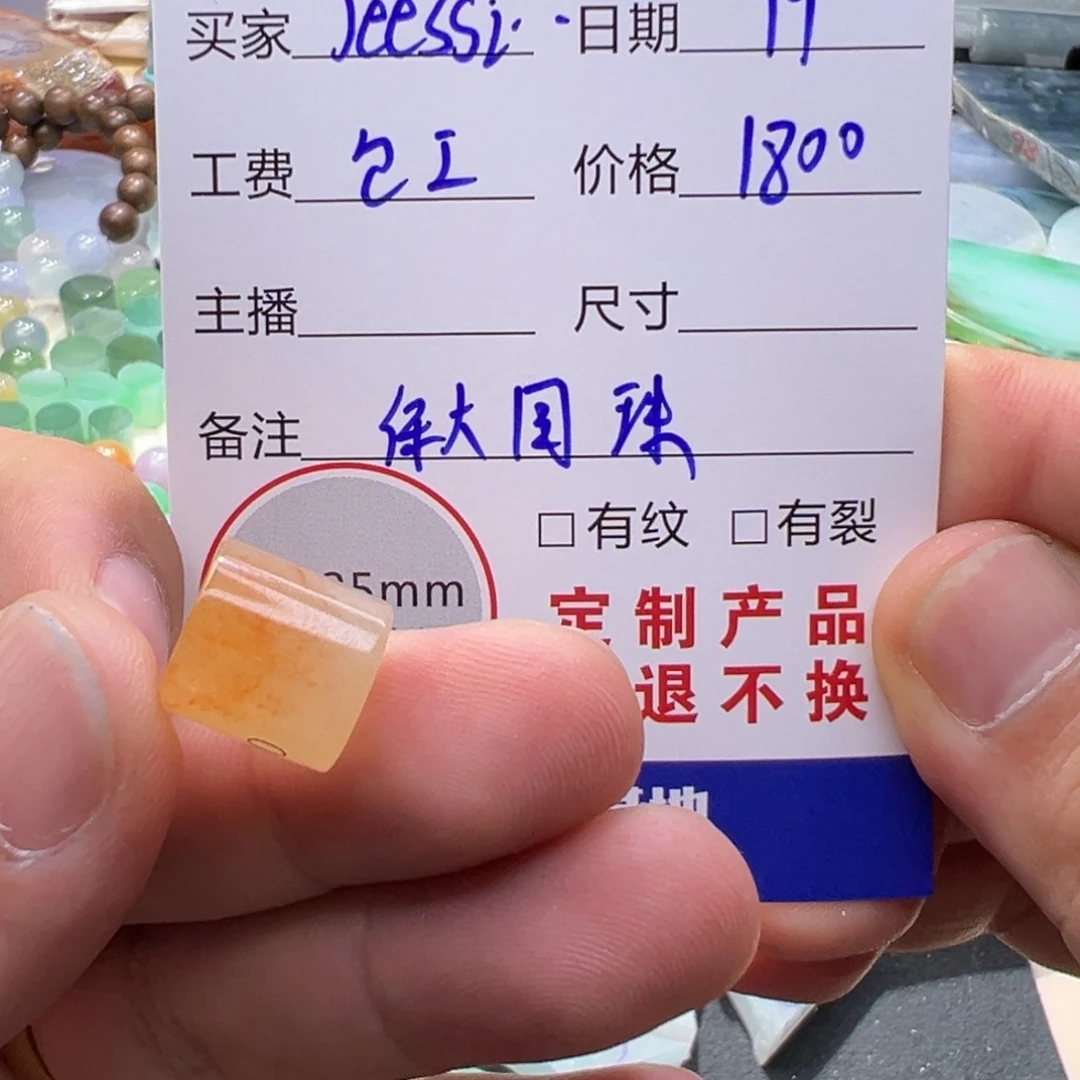 买家 Jeessi. 日期 17
工费 包工 价格 1800
主播 尺寸
备注 保大圆珠
25mm
□有纹 □有裂
定制产品
退不换